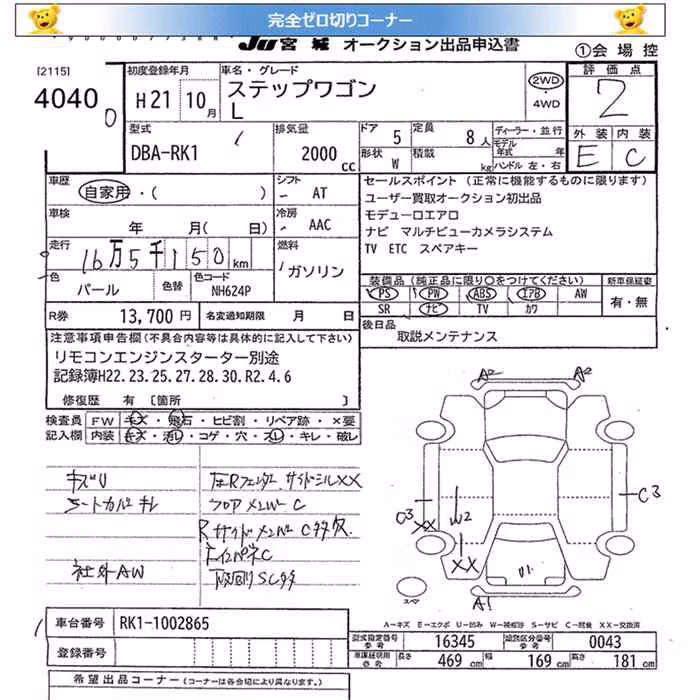 完全ゼロ切りコーナー
JU宮城 オークション出品申込書
①会場控
[2115]
4040
0
初度登録年月
H21 10月
車名・グレード
ステップワゴン
L
2WD
・
4WD
評価点
2
外装 内装
E C
型式
DBA-RK1
排気量
2000 CC
ドア 5
定員 8人
形状 W
積載 kg
ディーラー・並行
モデル年式 年
ハンドル 左・右
車歴
自家用・( )
シフト
AT
車検
年 月( 日)
冷房
AAC
走行
16万5千150km
燃料
ガソリン
色
パール
色替
色コード
NH624P
R券 13,700円
名変通知期限 月 日
セールスポイント (正常に機能するものに限ります)
ユーザー買取オークション初出品
モデューロエアロ
ナビ マルチビューカメラシステム
TV ETC スペアキー
装備品 (純正品に限り○をつけてください)
新車保証書
PS PW ABS エアB AW
SR ナビ TV カワ
有・無
後日品
取説メンテナンス
注意事項申告欄(不具合内容等は具体的に記入して下さい)
リモコンエンジンスターター別途
記録簿H22.23.25.27.28.30.R2.4.6
修復歴 有 [箇所 ]
検査員記入欄
FW キズ・飛石・ヒビ割・リペア跡・×要
内装 キズ・汚レ・コゲ・穴・スレ・キレ・破レ
キズU
シートカバーキレ
社外AW
左Rフェンダー サイドシルXX
フロアメンバーC
RサイドメンバーC
下廻りSC
A2 A2
C3
XX
W2
XX
C3
U1
A1
スペア
A-キズ E-エクボ U-凹み W-補修跡 S-サビ C-腐食 XX-交換済
車台番号 RK1-1002865
登録番号
型式指定番号参考 16345
類別区分番号参考 0043
車庫証明用参考 長さ 469cm 幅 169cm 高さ 181cm
希望出品コーナー (コーナーは各会場により異なります。)